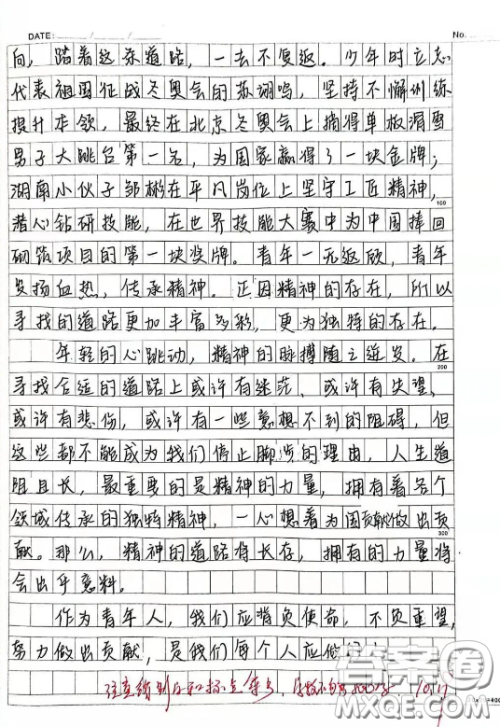 DATE: / / No.
向，踏着这条道路，一去不复返。少年时立志
代表祖国征战冬奥会的苏翊鸣，坚持不懈训练
提升本领，最终在北京冬奥会上摘得单板滑雪
男子大跳台第一名，为国家赢得了一块金牌；
湖南小伙子邹彬在平凡岗位上坚守工匠精神，
100
潜心钻研技能，在世界技能大赛中为中国捧回
砌筑项目的第一块奖牌。青年一无返顾，青年
发扬血热，传承精神。正因精神的存在，所以
寻找的道路更加丰富多彩，更为独特的存在。
年轻的心跳动，精神的脉搏随之迸发。在
200
寻找合适的道路上或许有迷茫，或许有失望，
或许有悲伤，或许有一些意想不到的阻碍，但
这些都不能成为我们停止脚步的理由，人生道
阻且长，最重要的是精神的力量，拥有着各个
领域传承的独特精神，一心想着为国贡献做出贡
300
献。那么，精神的道路将长存，拥有的力量将
会出乎意料。
作为青年人，我们应背负使命，不负重望，
努力做出贡献，是我们每个人应做
注意错别字和标点符号，
800字
400
答案圈